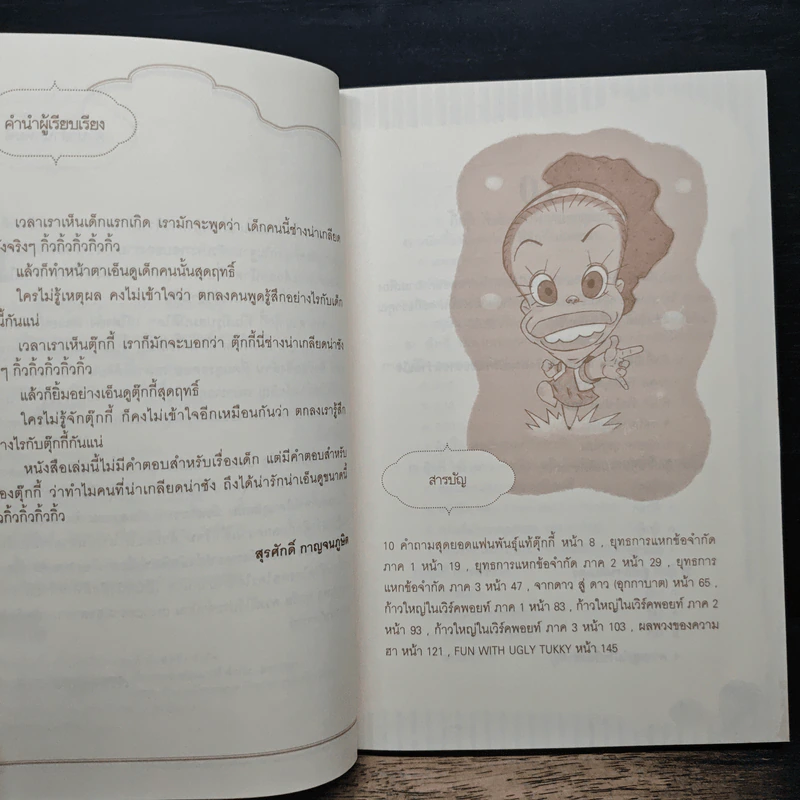 คำนำผู้เรียบเรียง
เวลาเราเห็นเด็กแรกเกิด เรามักจะพูดว่า เด็กคนนี้ช่างน่าเกลียด
จริงๆ กิ้วกิ้วกิ้วกิ้วกิ้ว
แล้วก็ทำหน้าตาเอ็นดูเด็กคนนั้นสุดฤทธิ์
ใครไม่รู้เหตุผล คงไม่เข้าใจว่า ตกลงคนพูดรู้สึกอย่างไรกับเด็ก
นี้กันแน่
เวลาเราเห็นตุ๊กกี้ เราก็มักจะบอกว่า ตุ๊กกี้นี่ช่างน่าเกลียดน่าชัง
ๆ กิ้วกิ้วกิ้วกิ้วกิ้ว
แล้วก็ยิ้มอย่างเอ็นดูตุ๊กกี้สุดฤทธิ์
ใครไม่รู้จักตุ๊กกี้ ก็คงไม่เข้าใจอีกเหมือนกันว่า ตกลงเรารู้สึก
างไรกับตุ๊กกี้กันแน่
หนังสือเล่มนี้ไม่มีคำตอบสำหรับเรื่องเด็ก แต่มีคำตอบสำหรับ
องตุ๊กกี้ ว่าทำไมคนที่น่าเกลียดน่าชัง ถึงได้น่ารักน่าเอ็นดูขนาดนี้
วกิ้วกิ้วกิ้วกิ้ว
สุรศักดิ์ กาญจนภูษิต
สารบัญ
10 คำถามสุดยอดแฟนพันธุ์แท้ตุ๊กกี้ หน้า 8 , ยุทธการแหกข้อจำกัด
ภาค 1 หน้า 19 , ยุทธการแหกข้อจำกัด ภาค 2 หน้า 29 , ยุทธการ
แหกข้อจำกัด ภาค 3 หน้า 47 , จากดาว สู่ ดาว (อุกกาบาต) หน้า 65 ,
ก้าวใหญ่ในเวิร์คพอยท์ ภาค 1 หน้า 83 , ก้าวใหญ่ในเวิร์คพอยท์ ภาค 2
หน้า 93 , ก้าวใหญ่ในเวิร์คพอยท์ ภาค 3 หน้า 103 , ผลพวงของความ
ฮา หน้า 121 , FUN WITH UGLY TUKKY หน้า 145